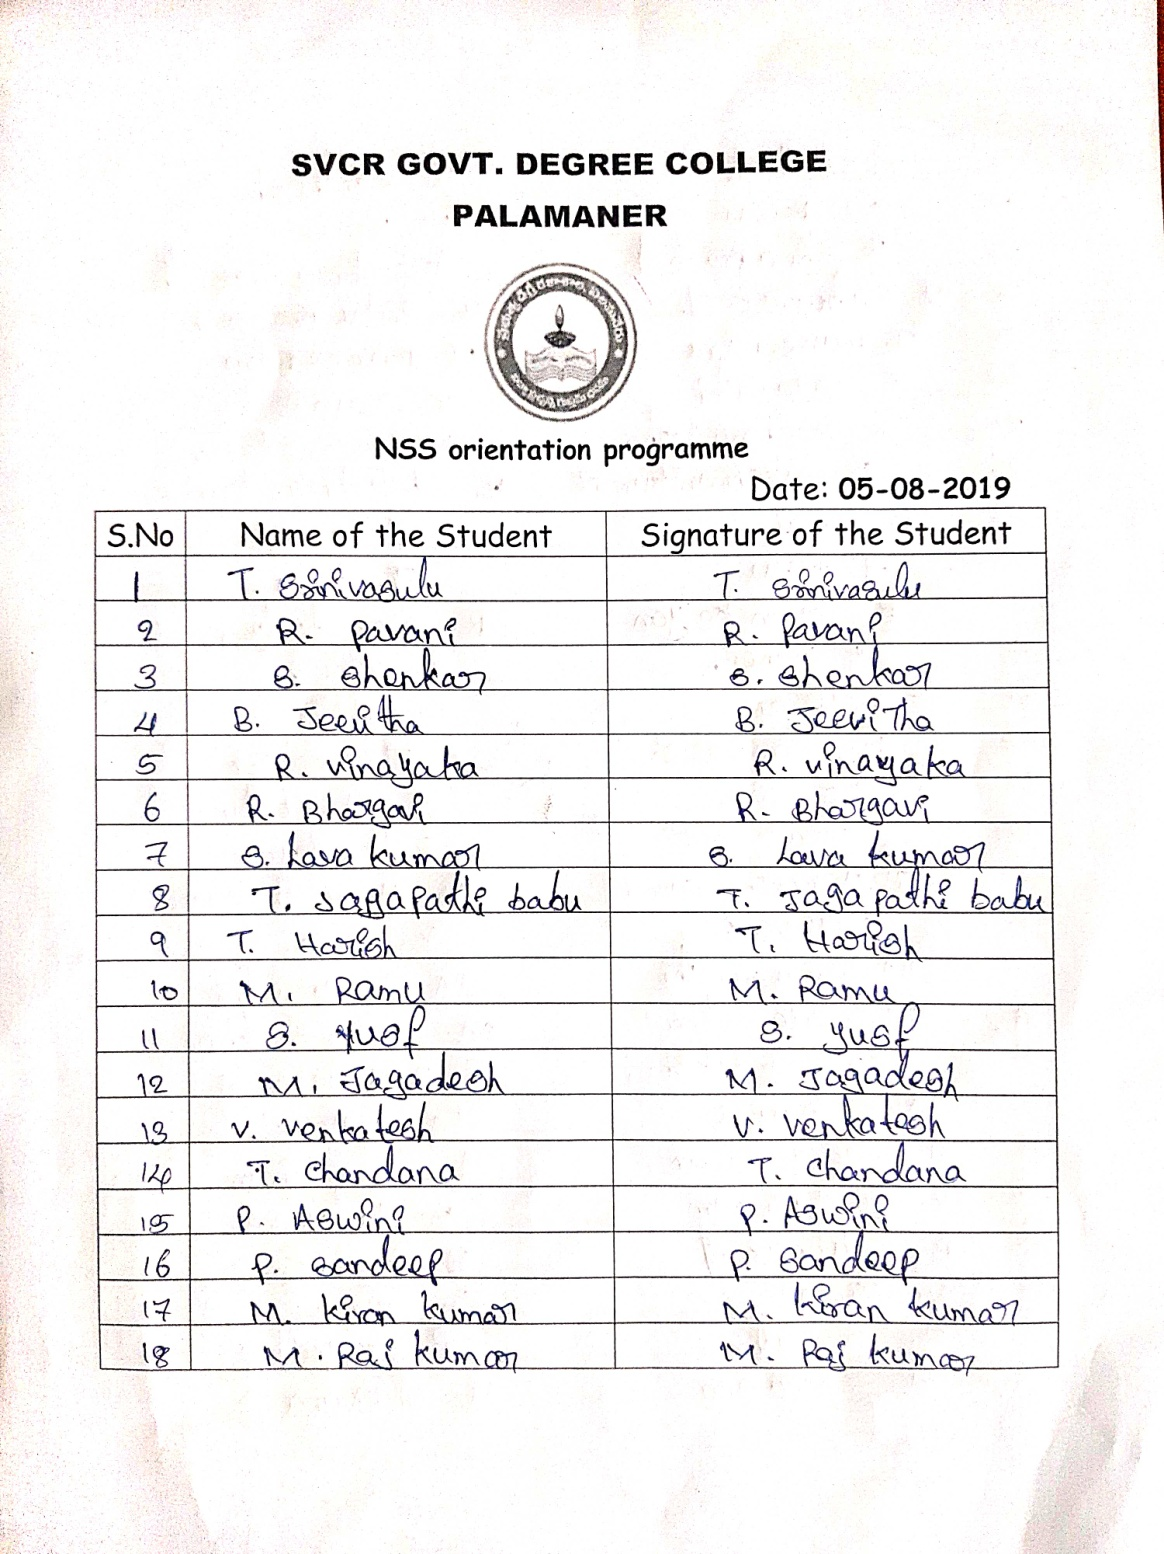 SVCR GOVT. DEGREE COLLEGE
PALAMANER
NSS orientation programme
Date: 05-08-2019
S.No Name of the Student Signature of the Student
1 T. Srinivasulu T. Srinivasulu
2 R. Pavani R. Pavani
3 S. Shenkar S. Shenkar
4 B. Jeevitha B. JeeviTha
5 R. vinayaka R. vinayaka
6 R. Bhargavi R. Bhargavi
7 S. Lava kumar S. Lava kumar
8 T. Jagapathi babu T. Jagapathi babu
9 T. Harish T. Harish
10 M. Ramu M. Ramu
11 S. yusf S. yusf
12 M. Jagadesh M. Jagadesh
13 V. venkatesh V. venkatesh
14 T. Chandana T. Chandana
15 P. Aswini P. Aswini
16 P. Sandeep P. Sandeep
17 M. Kiran kumar M. Kiran kumar
18 M. Raj kumar M. Raj kumar